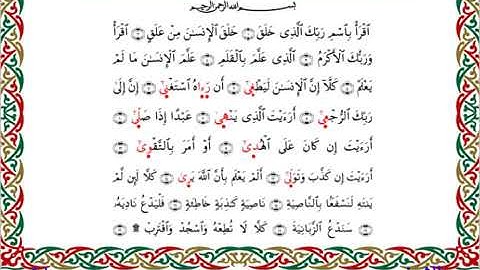 بسم الله الرحمن الرحيم
ٱقۡرَأۡ بِٱسۡمِ رَبِّكَ ٱلَّذِي خَلَقَ ۝ خَلَقَ ٱلۡإِنسَٰنَ مِنۡ عَلَقٍ ۝ ٱقۡرَأۡ
وَرَبُّكَ ٱلۡأَكۡرَمُ ۝ ٱلَّذِي عَلَّمَ بِٱلۡقَلَمِ ۝ عَلَّمَ ٱلۡإِنسَٰنَ مَا لَمۡ
يَعۡلَمۡ ۝ كَلَّآ إِنَّ ٱلۡإِنسَٰنَ لَيَطۡغَىٰٓ ۝ أَن رَّءَاهُ ٱسۡتَغۡنَىٰٓ ۝ إِنَّ إِلَىٰ
رَبِّكَ ٱلرُّجۡعَىٰٓ ۝ أَرَءَيۡتَ ٱلَّذِي يَنۡهَىٰ ۝ عَبۡدًا إِذَا صَلَّىٰٓ ۝
أَرَءَيۡتَ إِن كَانَ عَلَى ٱلۡهُدَىٰٓ ۝ أَوۡ أَمَرَ بِٱلتَّقۡوَىٰٓ ۝
أَرَءَيۡتَ إِن كَذَّبَ وَتَوَلَّىٰٓ ۝ أَلَمۡ يَعۡلَم بِأَنَّ ٱللَّهَ يَرَىٰ ۝ كَلَّا لَئِن لَّمۡ
يَنتَهِ لَنَسۡفَعَۢا بِٱلنَّاصِيَةِ ۝ نَاصِيَةٖ كَٰذِبَةٍ خَاطِئَةٖ ۝ فَلۡيَدۡعُ نَادِيَهُۥ
۝ سَنَدۡعُ ٱلزَّبَانِيَةَ ۝ كَلَّا لَا تُطِعۡهُ وَٱسۡجُدۡۤ وَٱقۡتَرِب ۩ ۝